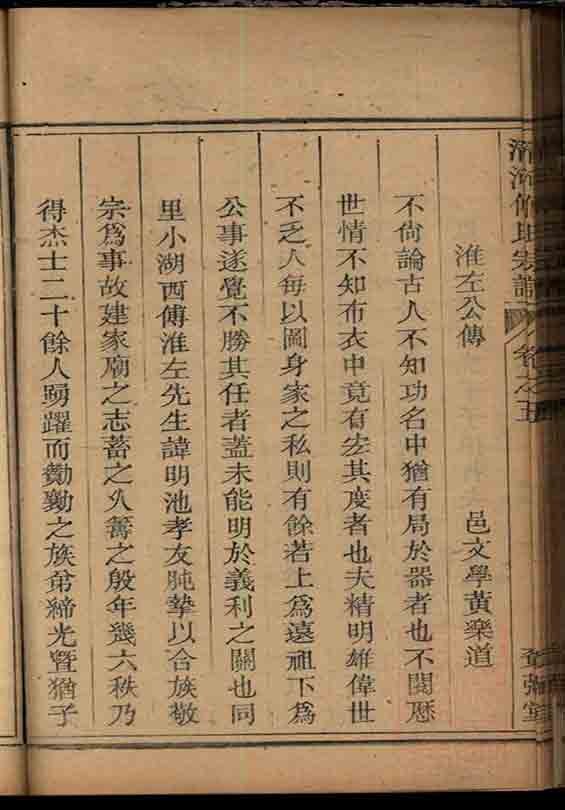 淮左公傳
邑文學黃樂道
不尙論古人不知功名中猶有局於器者也不閱歷
世情不知布衣中竟有宏其度者也夫精明雄偉世
不乏人每以圖身家之私則有餘若上爲遠祖下爲
公事遂覺不勝其任者蓋未能明於義利之關也同
里小湖西傅淮左先生諱明池孝友肫摯以合族敬
宗爲事故建家廟之志蓄之久籌之殷年幾六秩乃
得杰士二十餘人踴躍而勷之族弟締光暨猶子